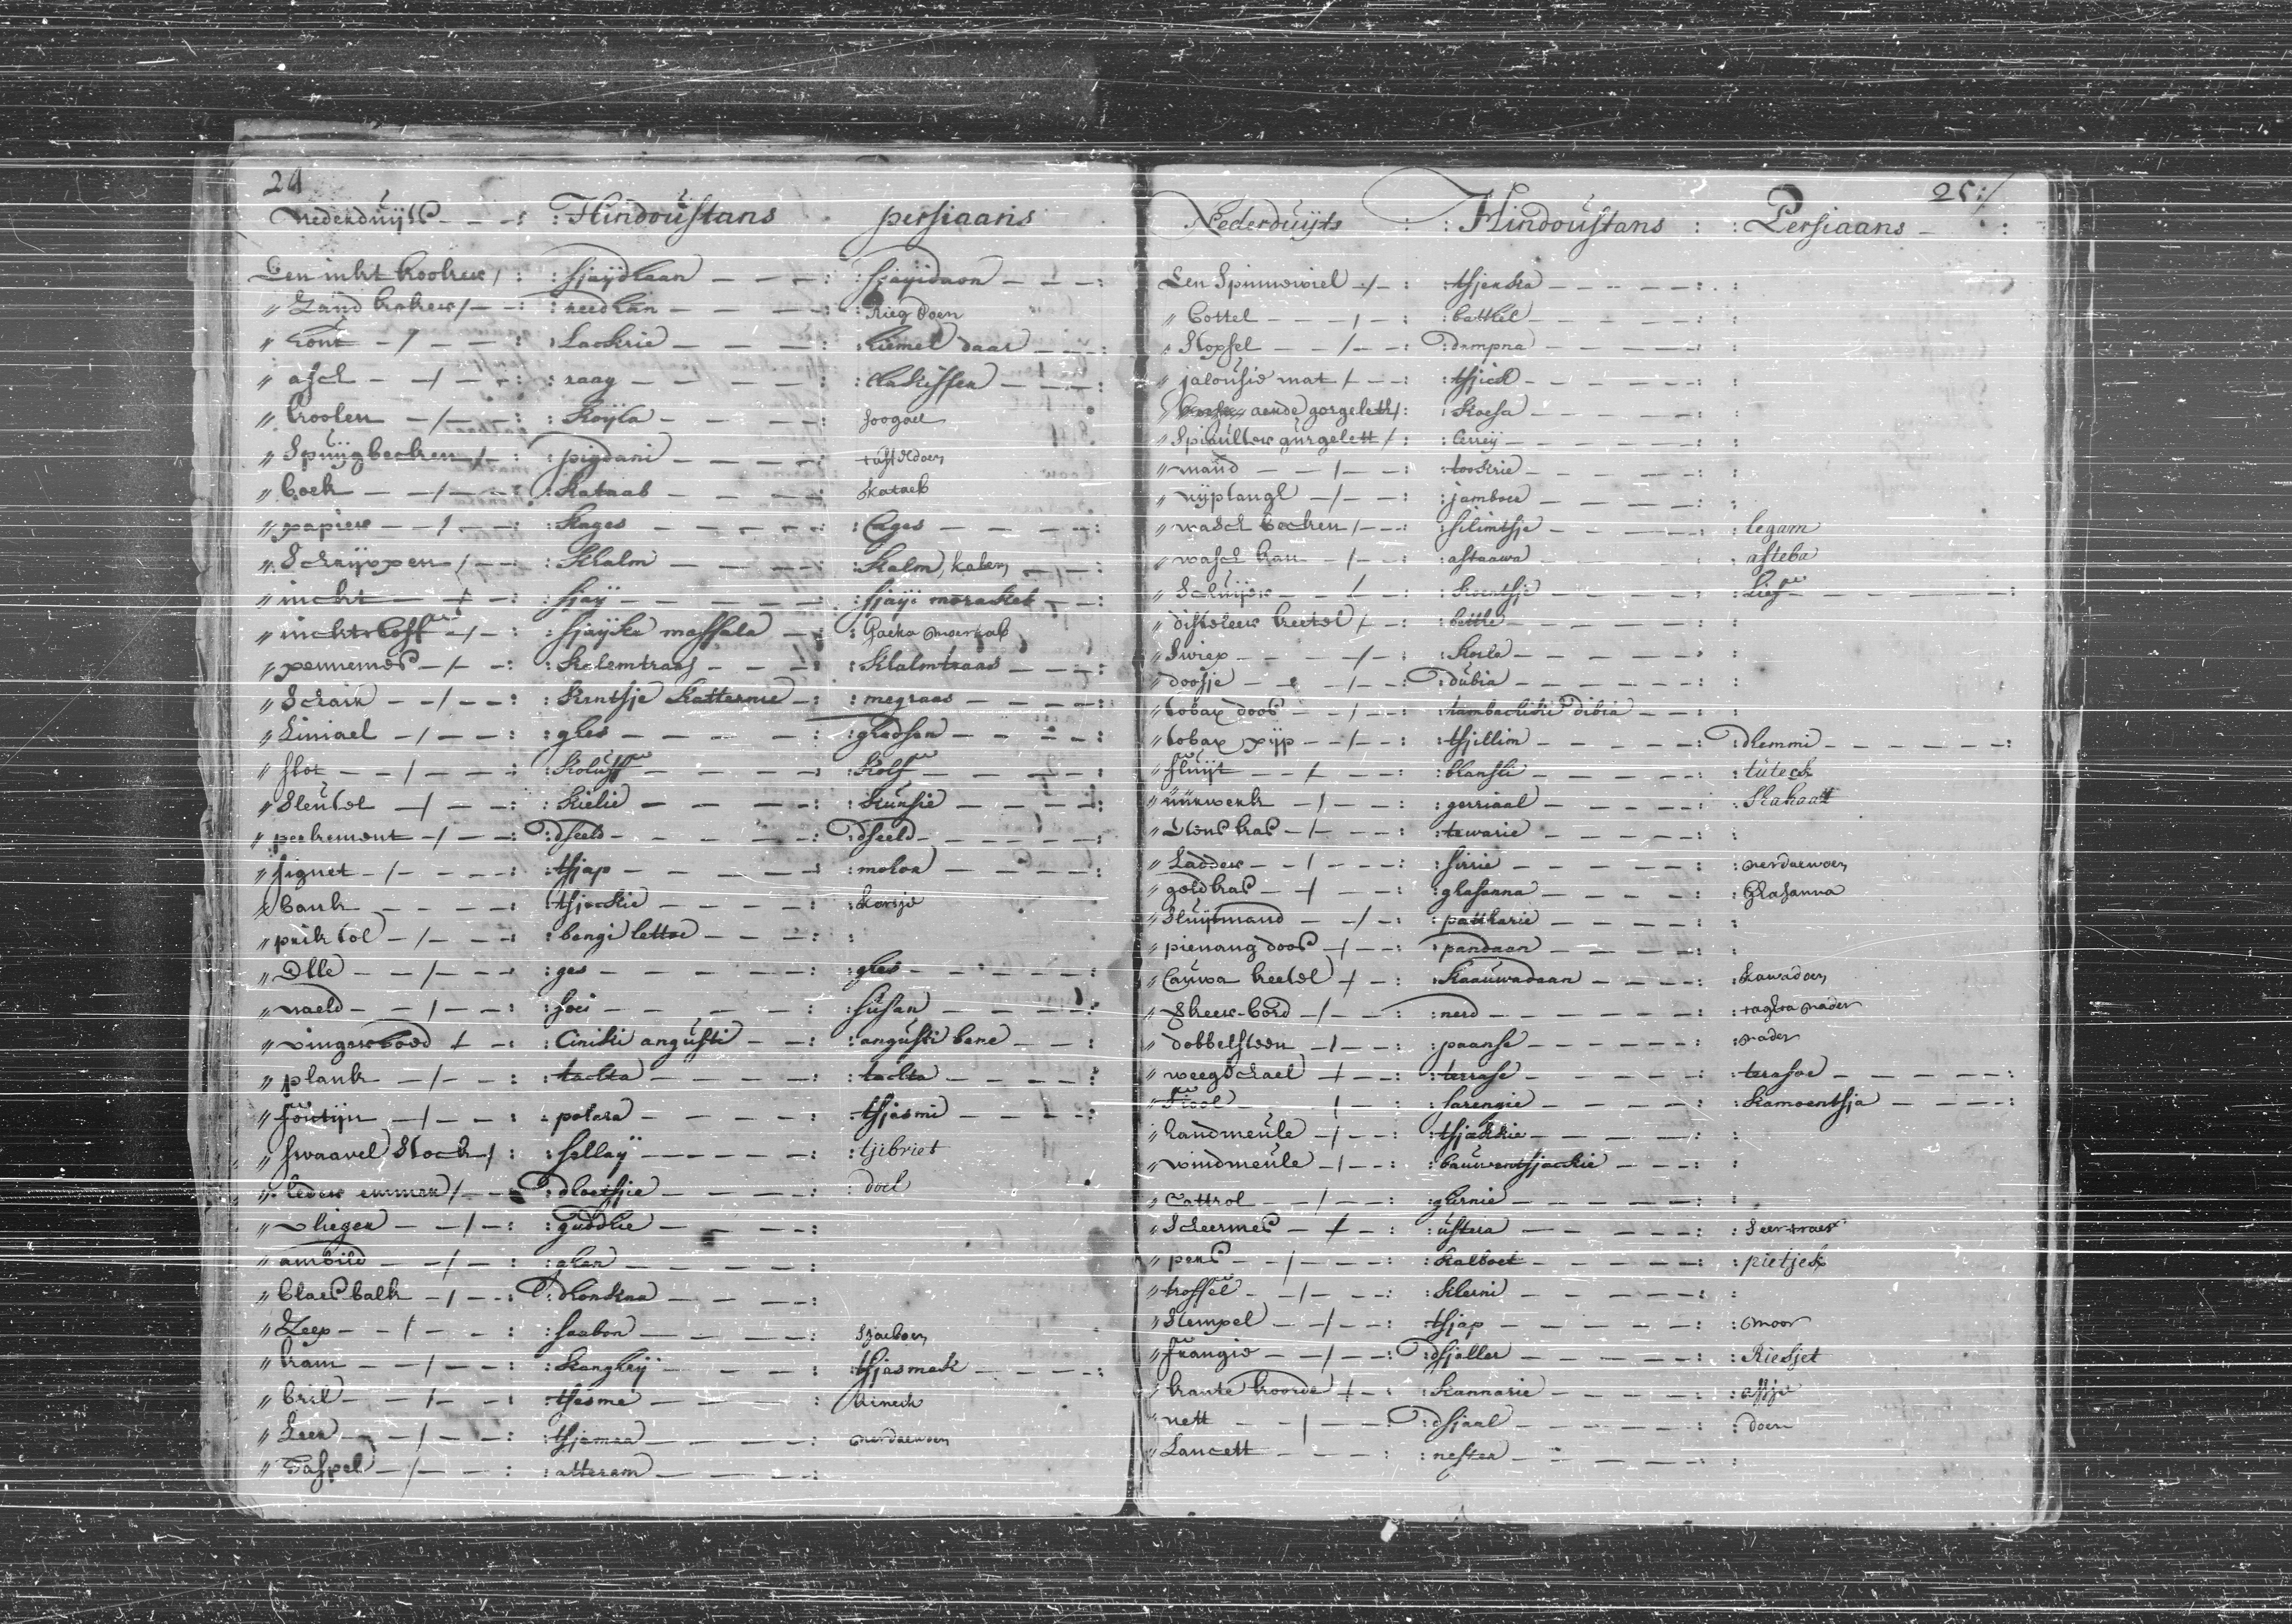 24
Nederduijts : Hindoustans persiaans
Een inkt kooker / : sjaijdhaan : sjayidaon :
" Zand koker / : reedhan : Rieg doen
" hout / : Lackrie : hiemel daar :
" asch / : raag :
" koolen / : Koyla : soogael
" Spuijgbecken / : pigdani : tastkdoen
" boek / : Kataab : Kataeb
" papier / : Kages : Cages :
" Schrijfpen / : Khalm : Kalm, kalem
" inckt / : sjaij : sjaiji moraskeb :
" inckt koff / : sjaijka massala :
" pennemes / : Kalemtraas : Khalmtraas :
" Schair / : Kentsje Katternie : megraas :
" Liniael / : ghes : ghedsen :
" slot / : Koluff : Kolf :
" Sleutel / : Kielie : Kunsie :
" perkement / : dseeld : dseeld :
" signet / : tsjap : mohon :
" bank : tsjackie : Korsje
" prik tol / : bengi lettoe : :
" Elle / : ges : ghes :
" naeld / : soei : susan :
" vingerhoed / : Ciniki angusti : angusti bane :
" plank / : tackta : tackta :
" foutijn / : potara : tsjasmi :
" swaavel Stock / : sallaij : tjibriet
" leder emmer / : dloetsje : doel
" vlieger / : guddhie :
" ambild / : ahen :
" blaesbalk / : dhonkna :
" Zeep / : saabon : Szaeboen
" kam / : Kangheij : tsjasmak :
" bril / : tsesme : Ainech
" Leer / : tsjamra : nerdaewoen
" Haspel / : atteram :
25:/
Nederduijts : : Hindoustans : : Persiaans :
Een Spinnewiel / : : tsjerka : :
" bottel / : : batthel : :
" Stopsel / : : dempna : :
" jalousie mat / : : tsjick : :
aerde gorgelett / : : Koesa :
" Spiaulter gurgelett / : :
" mand / : : tookrie : :
" rijptangl / : : jamboer : :
" wasch becken / : : silimtsje : : legam
" wasch kan / : : astaawa : asteba
" Schuijer / : : Koentsje : : Lief :
" disteleer keetel / : : betthe : :
" Swiep / : : Korla : :
" doosje / : : dubia : :
" tobax doos / : : tambackiki dibia : :
" tobax pijp / : : tsjillim : : dhemmi :
" fluijt / : : bhansli : : tuteck
" uurwerk / : : gerriaal : : Skahaatt
" Stens kas / : : tewarie : :
" Ladder / : : sirrie : : nerdaewoen
" goldkas / : : ghasanna : : Ghasanna
" Sluijtmand / : : pattharie : :
" pienang doos / : : pandaan : :
" Cauwa keetel / : : Kaauwadaan : : Kawadoen
" Skeer-bord / : : nerd : : tagta nader
" dobbelsteen / : : paanse : : nader
" weegSchael / : : terrase : : terasoe :
" Fiool / : : sarengie : : Kamoentsja :
" handmeule / : : tsjackie : :
" windmeule / : : bauwentsjackie : :
" Cattrol / : : ghirnie : :
" Scheermes / : : ustera : : Seerteraes
" pens / : : Kalboet : : pietjek
" troffel / : : Kherni : :
" Stempel / : : tsjap : : moor
" frangie / : : dsjaller : : Riesjet
" kante koorde / : : Kannarie : : assje
" nett / : : dsjaal : : doen
" Lancett : : nester :